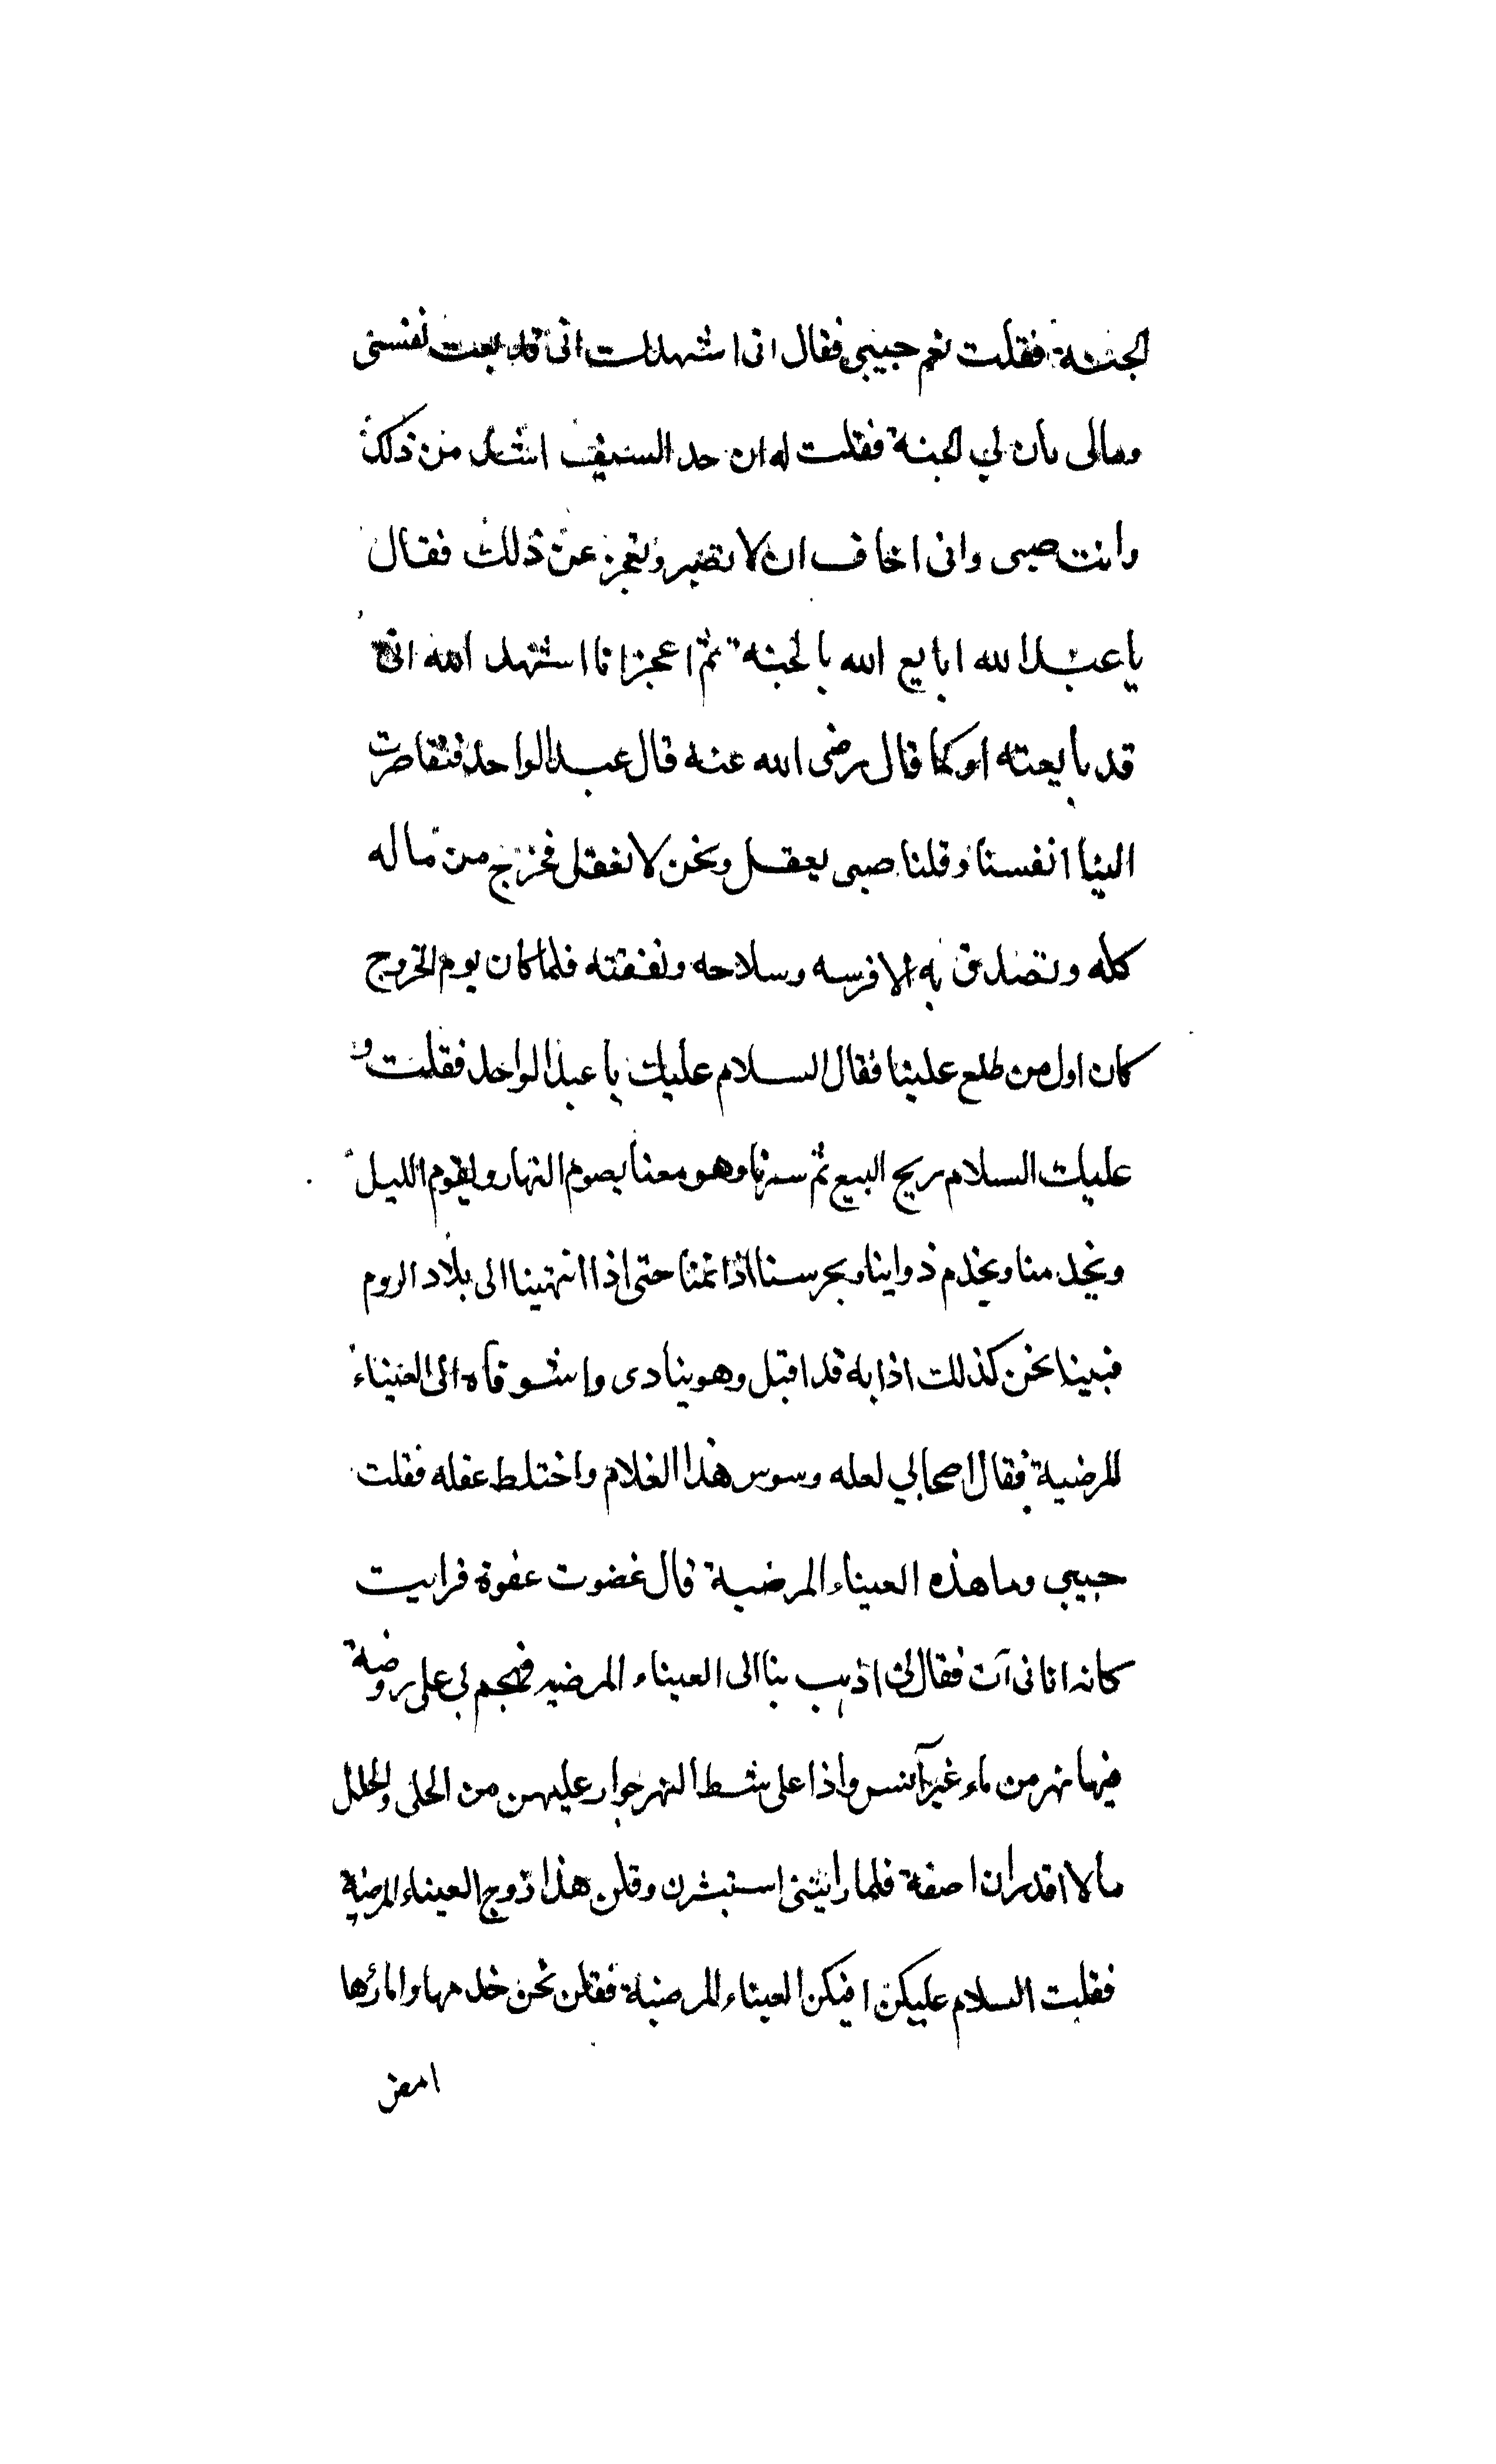 الجنة فقلت نعم حبيبي فقال اني اشهدك اني قد بعت نفسي
ومالى بان لي الجنة فقلت له ان حد السيف اشد من ذلك
وانت صبى وانى اخاف ان لا تصبر وتعجز عن ذلك فقال
يا عبد الله ابايع الله بالجنة ثم اعجز انا اشهد الله انى
قد بايعته اوكما قال رضى الله عنه قال عبد الواحد فتقاصرت
الينا انفسنا وقلنا صبى يعقل ونحن لا نعقل فخرج من ماله
كله وتصدق به الا فرسه وسلاحه ونفقته فلما كان يوم الخروج
كان اول من طلع علينا فقال السلام عليك يا عبد الواحد فقلت و
عليك السلام ربح البيع ثم سرنا وهو معنا يصوم النهار ويقوم الليل
ويخدمنا ويخدم دوابنا ويحرسنا اذا نمنا حتى اذا انتهينا الى بلاد الروم
فبينا نحن كذلك اذا به قد اقبل وهو ينادى واشوقاه الى العيناء
المرضية فقال اصحابي لعله وسوس هذا الغلام واختلط عقله فقلت
حبيبي وما هذه العيناء المرضية قال غفوت غفوة فرايت
كانه اتانى آت فقال لى اذهب بنا الى العيناء المرضيه فهجم بي على روضة
فيها نهر من ماء غير آسن واذا على شط النهر جوار عليهن من الحلى والحلل
مالا اقدر ان اصفه فلما راينني استبشرن وقلن هذا زوج العيناء المرضية
فقلت السلام عليكن افيكن العيناء المرضية فقلن نحن خدمها واماؤها
امض